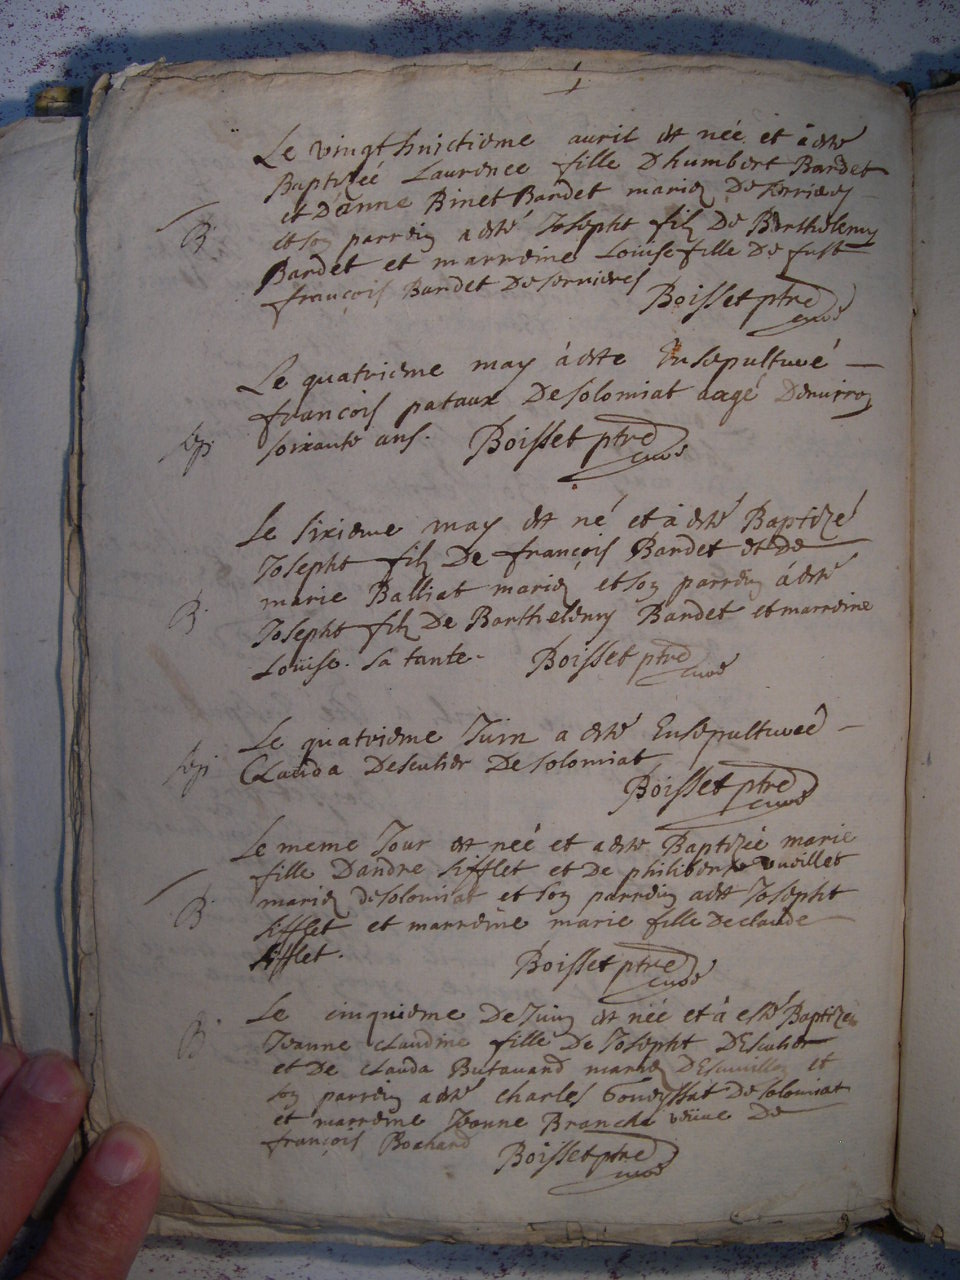 Le vingt huictieme auril est née et à esté
Baptizéé Laurence fille D humbert Bardet
et Danne Binet Bardet mariez De serrieres
B. et son parrein a esté Josepht filz De Berthelemy
Bardet et marreine Loüise fille De fust
françois Bardet De serrieres
Boisset ptre
curé
Le quatrieme may à este Ensepulturé
francois pataux De solomiat aagé Denuiron
sep. soixante ans. Boisset ptre
curé
Le sixieme may est né et à esté Baptizé
Josepht filz De françois Bardet et De
marie Balliat mariez et son parrein à esté
B. Josepht filz De Barthelemy Bardet et marreine
Loüise. sa tante. Boisset ptre
curé
Le quatrieme Juin a esté Ensepulturéé
sep. Clauda Descutier De solomiat
Boisset ptre
curé
Le meme Jour est néé et a esté Baptizéé marie
fille Dandre sifflet et De philiberte vueillet
mariez de solomiat et son parrein a est Josepht
B. sifflet et marreine marie fille De claude
sifflet.
Boisset ptre
curé
Le cinquieme De Juin est néé et à esté Baptizéé
B. Jeanne claudine fille De Josepht Descutier
et De clauda Butauand mariez
son parrein a esté charles Goueyssat De solomiat
et marreine Jeanne Branche veüue De
françois Bochard Boisset ptre
curé